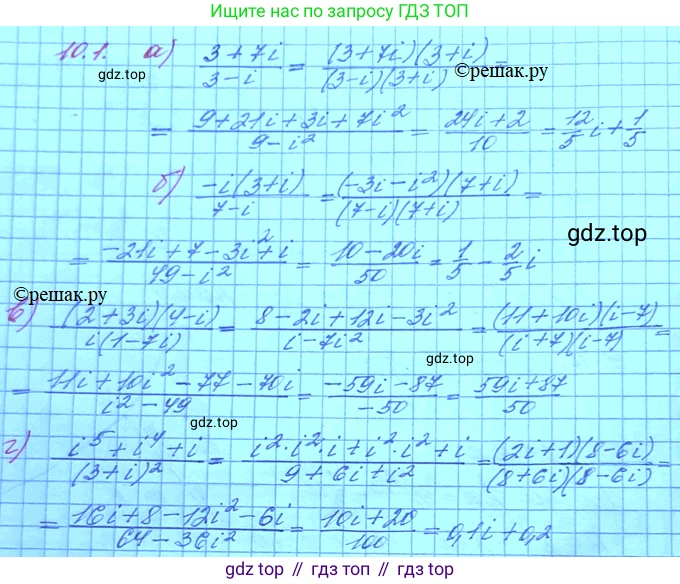 Ищите нас по запросу ГДЗ ТОП
10.1. а) (3+7i)/(3-i) = ((3+7i)(3+i))/((3-i)(3+i)) =
©решак.ру
= (9+21i+3i+7i²)/(9-i²) = (24i+2)/10 = 12/5 i + 1/5
б) (-i(3+i))/(7-i) = ((-3i-i²)(7+i))/((7-i)(7+i)) =
gdz.top
= (-21i+7-3i²+i)/(49-i²) = (10-20i)/50 = 1/5 - 2/5 i
©решак.ру
в) ((2+3i)(4-i))/(i(1-7i)) = (8-2i+12i-3i²)/(i-7i²) = ((11+10i)(i-7))/((i+7)(i-7)) =
gdz.top
= (11i+10i²-77-70i)/(i²-49) = (-59i-87)/(-50) = (59i+87)/50
gdz.top
г) (i⁵+i⁴+i)/(3+i)² = (i²·i²·i+i²·i²+i)/(9+6i+i²) = ((2i+1)(8-6i))/((8+6i)(8-6i)) =
= (16i+8-12i²-6i)/(64-36i²) = (10i+20)/100 = 0,1i+0,2
gdz.top // гдз.топ // гдз.top // gdz.топ